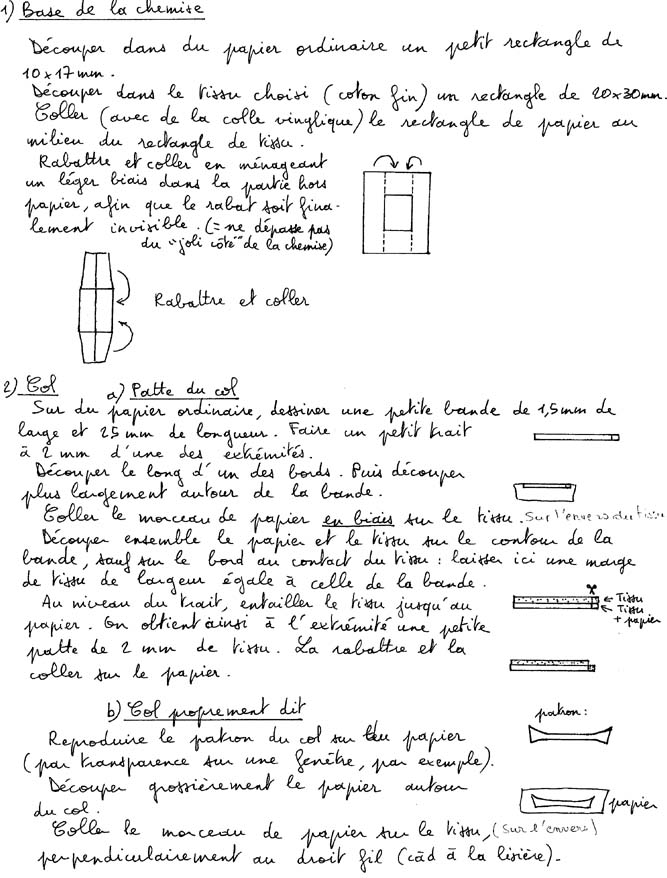 1) Base de la chemise
Découper dans du papier ordinaire un petit rectangle de
10x17mm.
Découper dans le tissu choisi (coton fin) un rectangle de 20x30mm.
Coller (avec de la colle vinylique) le rectangle de papier au
milieu du rectangle de tissu.
Rabattre et coller en ménageant
un léger biais dans la partie hors
papier, afin que le rabat soit fina-
lement invisible. (= ne dépasse pas
du "joli côté" de la chemise)
Rabattre et coller
2) Col
a) Patte du col
Sur du papier ordinaire, dessiner une petite bande de 1,5mm de
large et 25 mm de longueur. Faire un petit trait
à 2 mm d'une des extrémités.
Découper le long d'un des bords. Puis découper
plus largement autour de la bande.
Coller le morceau de papier en biais sur le tissu. Sur l'envers du tissu
Découper ensemble le papier et le tissu sur le contour de la
bande, sauf sur le bord au contact du tissu : laisser ici une marge
de tissu de largeur égale à celle de la bande.
Au niveau du trait, entailler le tissu jusqu'au
papier. On obtient ainsi à l'extrémité une petite
patte de 2 mm de tissu. La rabattre et la
coller sur le papier.
← Tissu
← Tissu
+ papier
b) Col proprement dit
Reproduire le patron du col sur du papier
(par transparence sur une fenêtre, par exemple).
Découper grossièrement le papier autour
du col.
patron :
papier
Coller le morceau de papier sur le tissu, (sur l'envers)
perpendiculairement au droit fil (càd à la lisière).